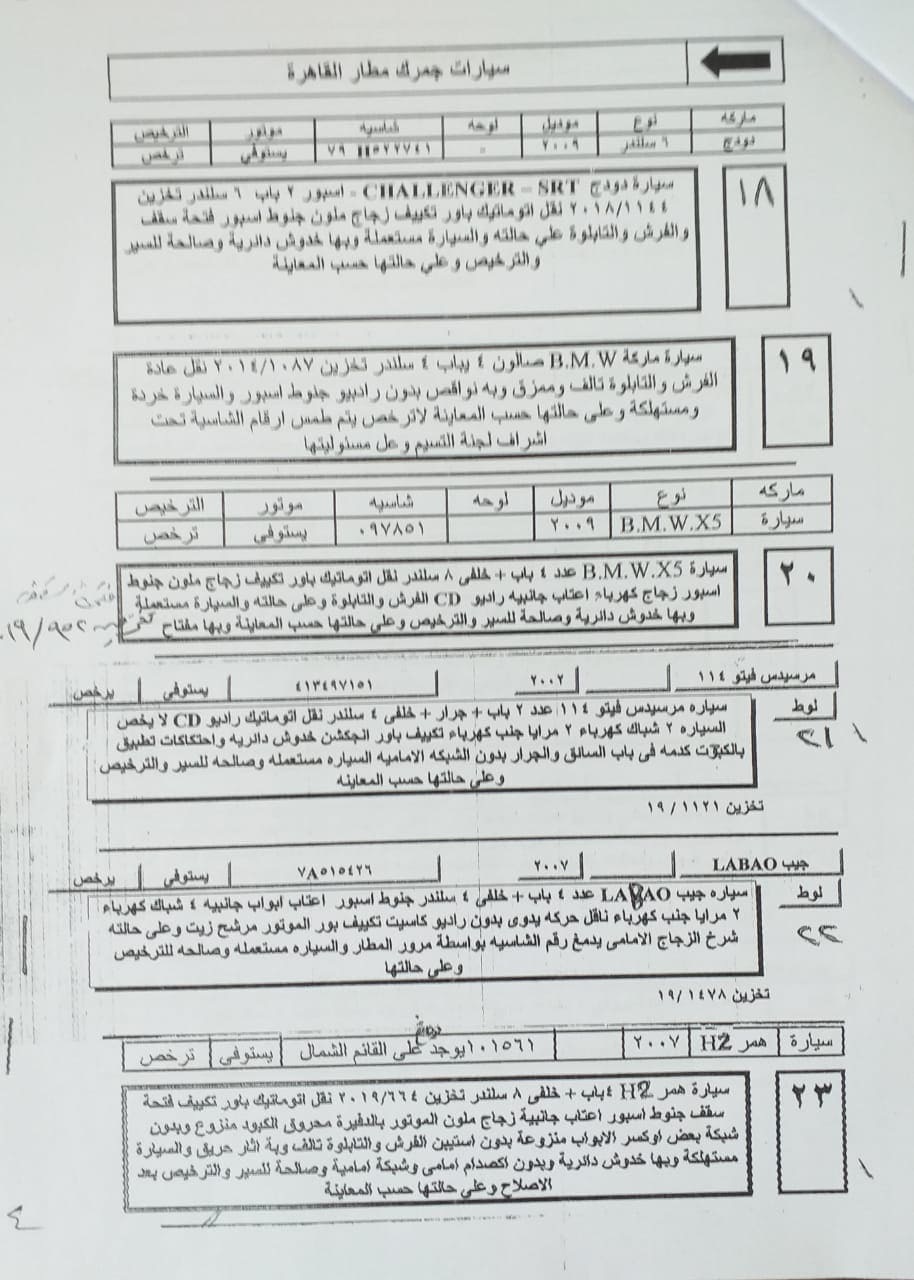 سيارات جمرك مطار القاهرة
ماركه نوع موديل لوحه شاسيه موتور الترخيص
دودج ٦ سلندر ٢٠٠٩ - يستوفي ترخص
١٨
سيارة دودج CHALLENGER – SRT - اسبور ٢ باب ٦ سلندر تخزين
٢٠١٨/١١٤٤ نقل اتوماتيك باور تكييف زجاج ملون جنوط اسبور فتحة سقف
والفرش والتابلوة علي حالته والسيارة مستعملة وبها خدوش دائرية وصالحة للسير
والترخيص وعلي حالتها حسب المعاينة
١٩
سيارة ماركة B.M.W صالون ٤ يباب ٤ سلندر تخزين ٢٠١٤/١٠٨٧ نقل عادة
الفرش والتابلوة تالف وممزق وبه نواقص بدون راديو جنوط اسبور والسيارة خردة
ومستهلكة وعلى حالتها حسب المعاينة لاترخص يتم طمس ارقام الشاسية تحت
اشراف لجنة التسيم وعل مسئوليتها
ماركه نوع موديل لوحه شاسيه موتور الترخيص
سيارة B.M.W.X5 ٢٠٠٩ ٠٩٧٨٥١ يستوفي ترخص
٢٠
سيارة B.M.W.X5 عدد ٤ باب + خلفى ٨ سلندر نقل اتوماتيك باور تكييف زجاج ملون جنوط
اسبور زجاج كهرباء اعتاب جانبيه راديو CD الفرش والتابلوة وعلى حالته والسيارة مستعملة
وبها خدوش دائرية وصالحة للسير والترخيص وعلي حالتها حسب المعاينة وبها مفتاح
١٩/٩٥٢
مرسيدس فيتو ١١٤ ٢٠٠٢ ٤١٣٤٩٧١٥١ يستوفي يرخص
لوط
٢١
سياره مرسيدس فيتو ١١٤ عدد ٢ باب + جرار + خلفى ٤ سلندر نقل اتوماتيك راديو CD لا يخص
السياره ٢ شباك كهرباء ٢ مرايا جنب كهرباء تكييف باور الجكشن خدوش دائريه واحتكاكات تطبيق
بالكبوت كدمه فى باب السائق والجرار بدون الشبكه الاماميه السياره مستعمله وصالحه للسير والترخيص
وعلى حالتها حسب المعاينه
تخزين ١٩/١١٢١
جيب LABAO ٢٠٠٧ ٧٨٥١٥٤٢٦ يستوفي يرخص
لوط
٢٢
سياره جيب LABAO عدد ٤ باب + خلفى ٤ سلندر جنوط اسبور اعتاب ابواب جانبيه ٤ شباك كهرباء
٢ مرايا جنب كهرباء ناقل حركه يدوى بدون راديو كاسيت تكييف بور الموتور مرشح زيت وعلى حالته
شرخ الزجاج الامامى يدمغ رقم الشاسيه بواسطة مرور المطار والسياره مستعمله وصالحه للترخيص
وعلى حالتها
تخزين ١٩/١٤٧٨
سيارة همر H2 ٢٠٠٧ ١٠١٥٦١ يوجد على القائم الشمال يستوفي ترخص
٢٣
سيارة همر H2 ٤باب + خلفى ٨ سلندر تخزين ٢٠١٩/٦٦٤ نقل اتوماتيك باور تكييف فتحة
سقف جنوط اسبور اعتاب جانبية زجاج ملون الموتور بالدفيرة محروق الكبود منزوع وبدون
شبكة بعض اوكسر الابواب منزوعة بدون استبن الفرش والتابلوة تالف وبة اثار حريق والسيارة
مستهلكة وبها خدوش دائرية وبدون اكصدام امامى وشبكة امامية وصالحة للسير والترخيص بعد
الاصلاح وعلي حالتها حسب المعاينة
٤